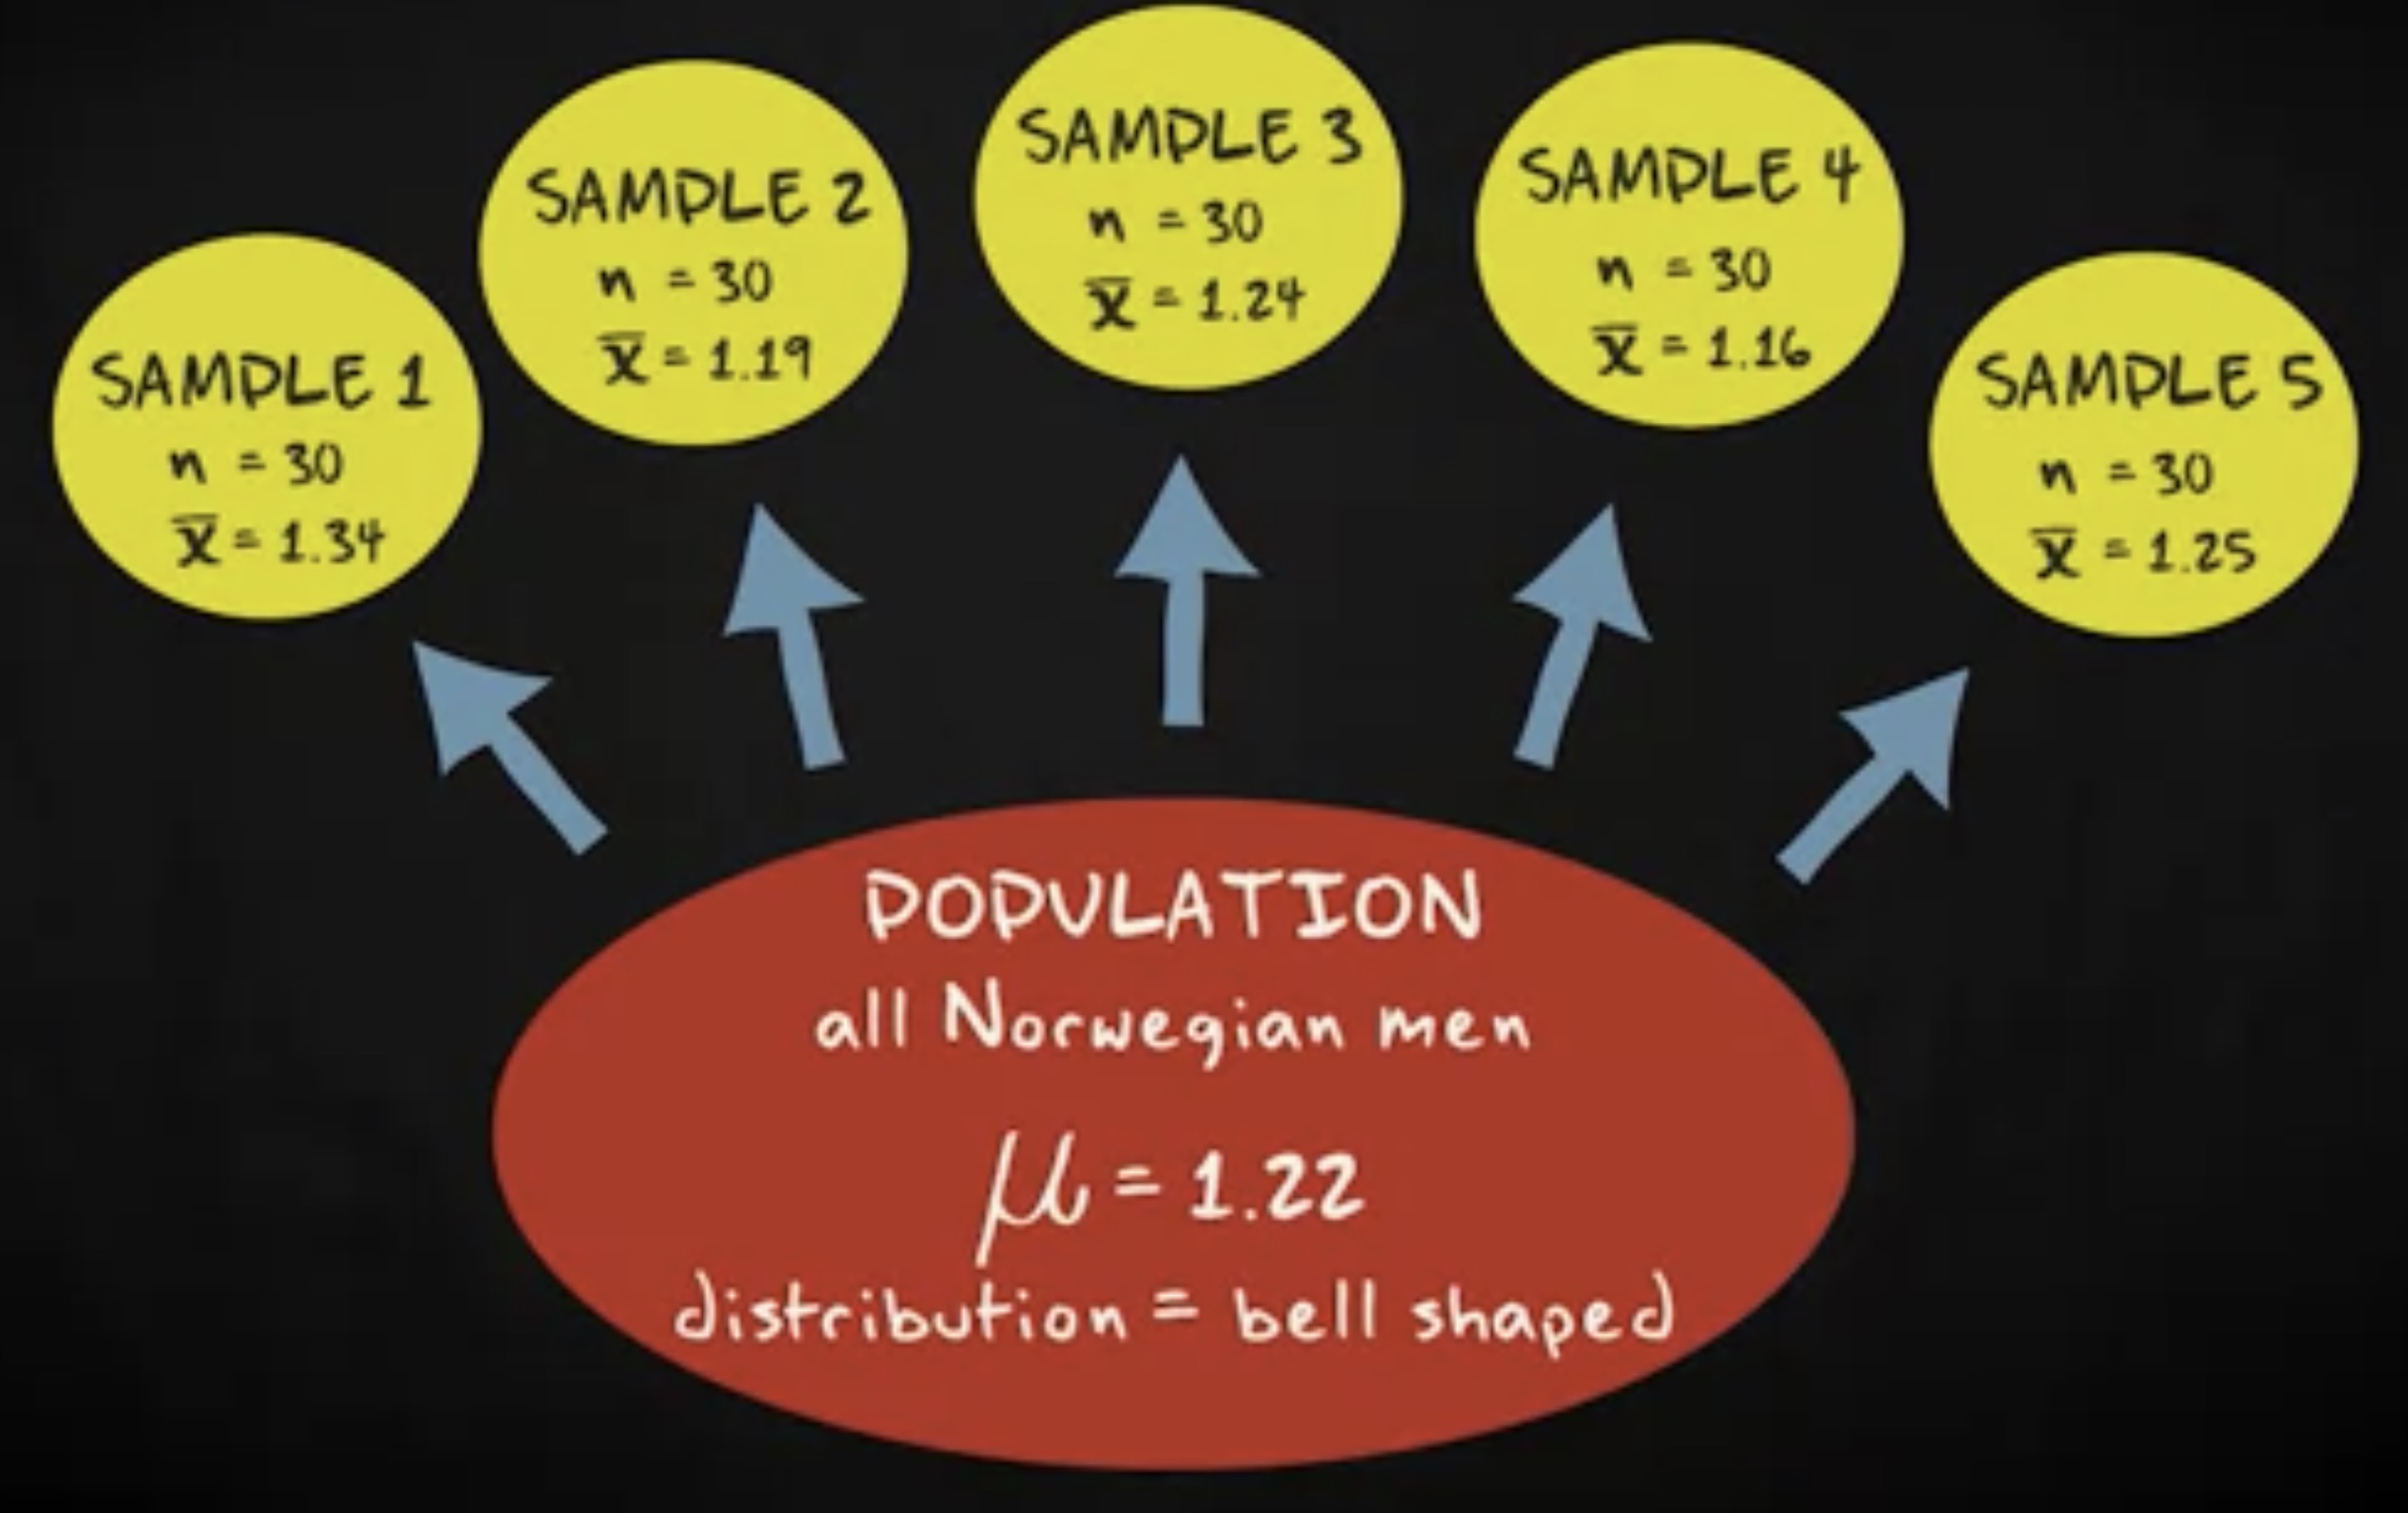 SAMPLE 1
n = 30
x̅ = 1.34
SAMPLE 2
n = 30
x̅ = 1.19
SAMPLE 3
n = 30
x̅ = 1.24
SAMPLE 4
n = 30
x̅ = 1.16
SAMPLE 5
n = 30
x̅ = 1.25
POPULATION
all Norwegian men
μ = 1.22
distribution = bell shaped